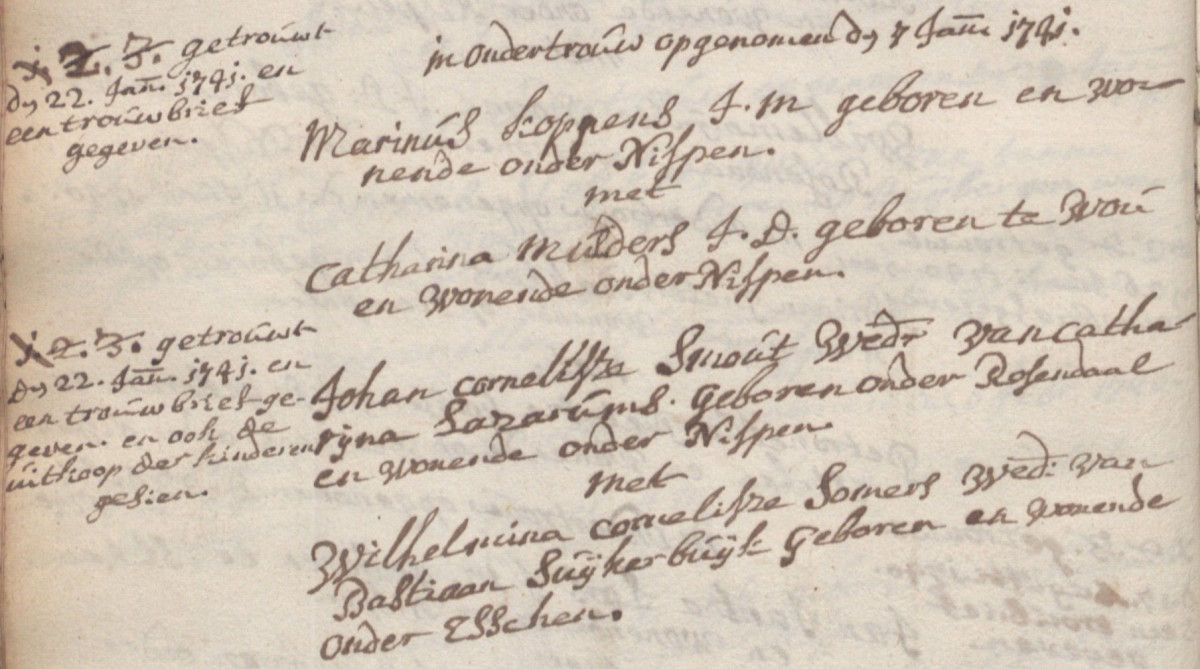 1. 2. 3. getrouwt
dy 22. Jañ. 1741. en
een trouwbrief
gegeven.
in ondertrouw opgenomen dy 7 Jañ. 1741.
Marinus Koppens J. M geboren en wo-
nende onder Nispen.
met
Catharina Mulders J. D. geboren te Wou
en wonende onder Nispen.
1. 2. 3. getrouwt
dy 22. Jañ. 1741. en
een trouwbrief ge-
geven. en ook de
uitkoop der kinderen
gesien.
Johan Cornelisze Smout Wedr. van Catha-
ryna Lazarums. geboren onder Rosendaal
en wonende onder Nispen.
met
Wilhelmina Cornelisze Somers Wed: van
Bastiaan Suijkerbuijk geboren en wonende
onder Esschen.